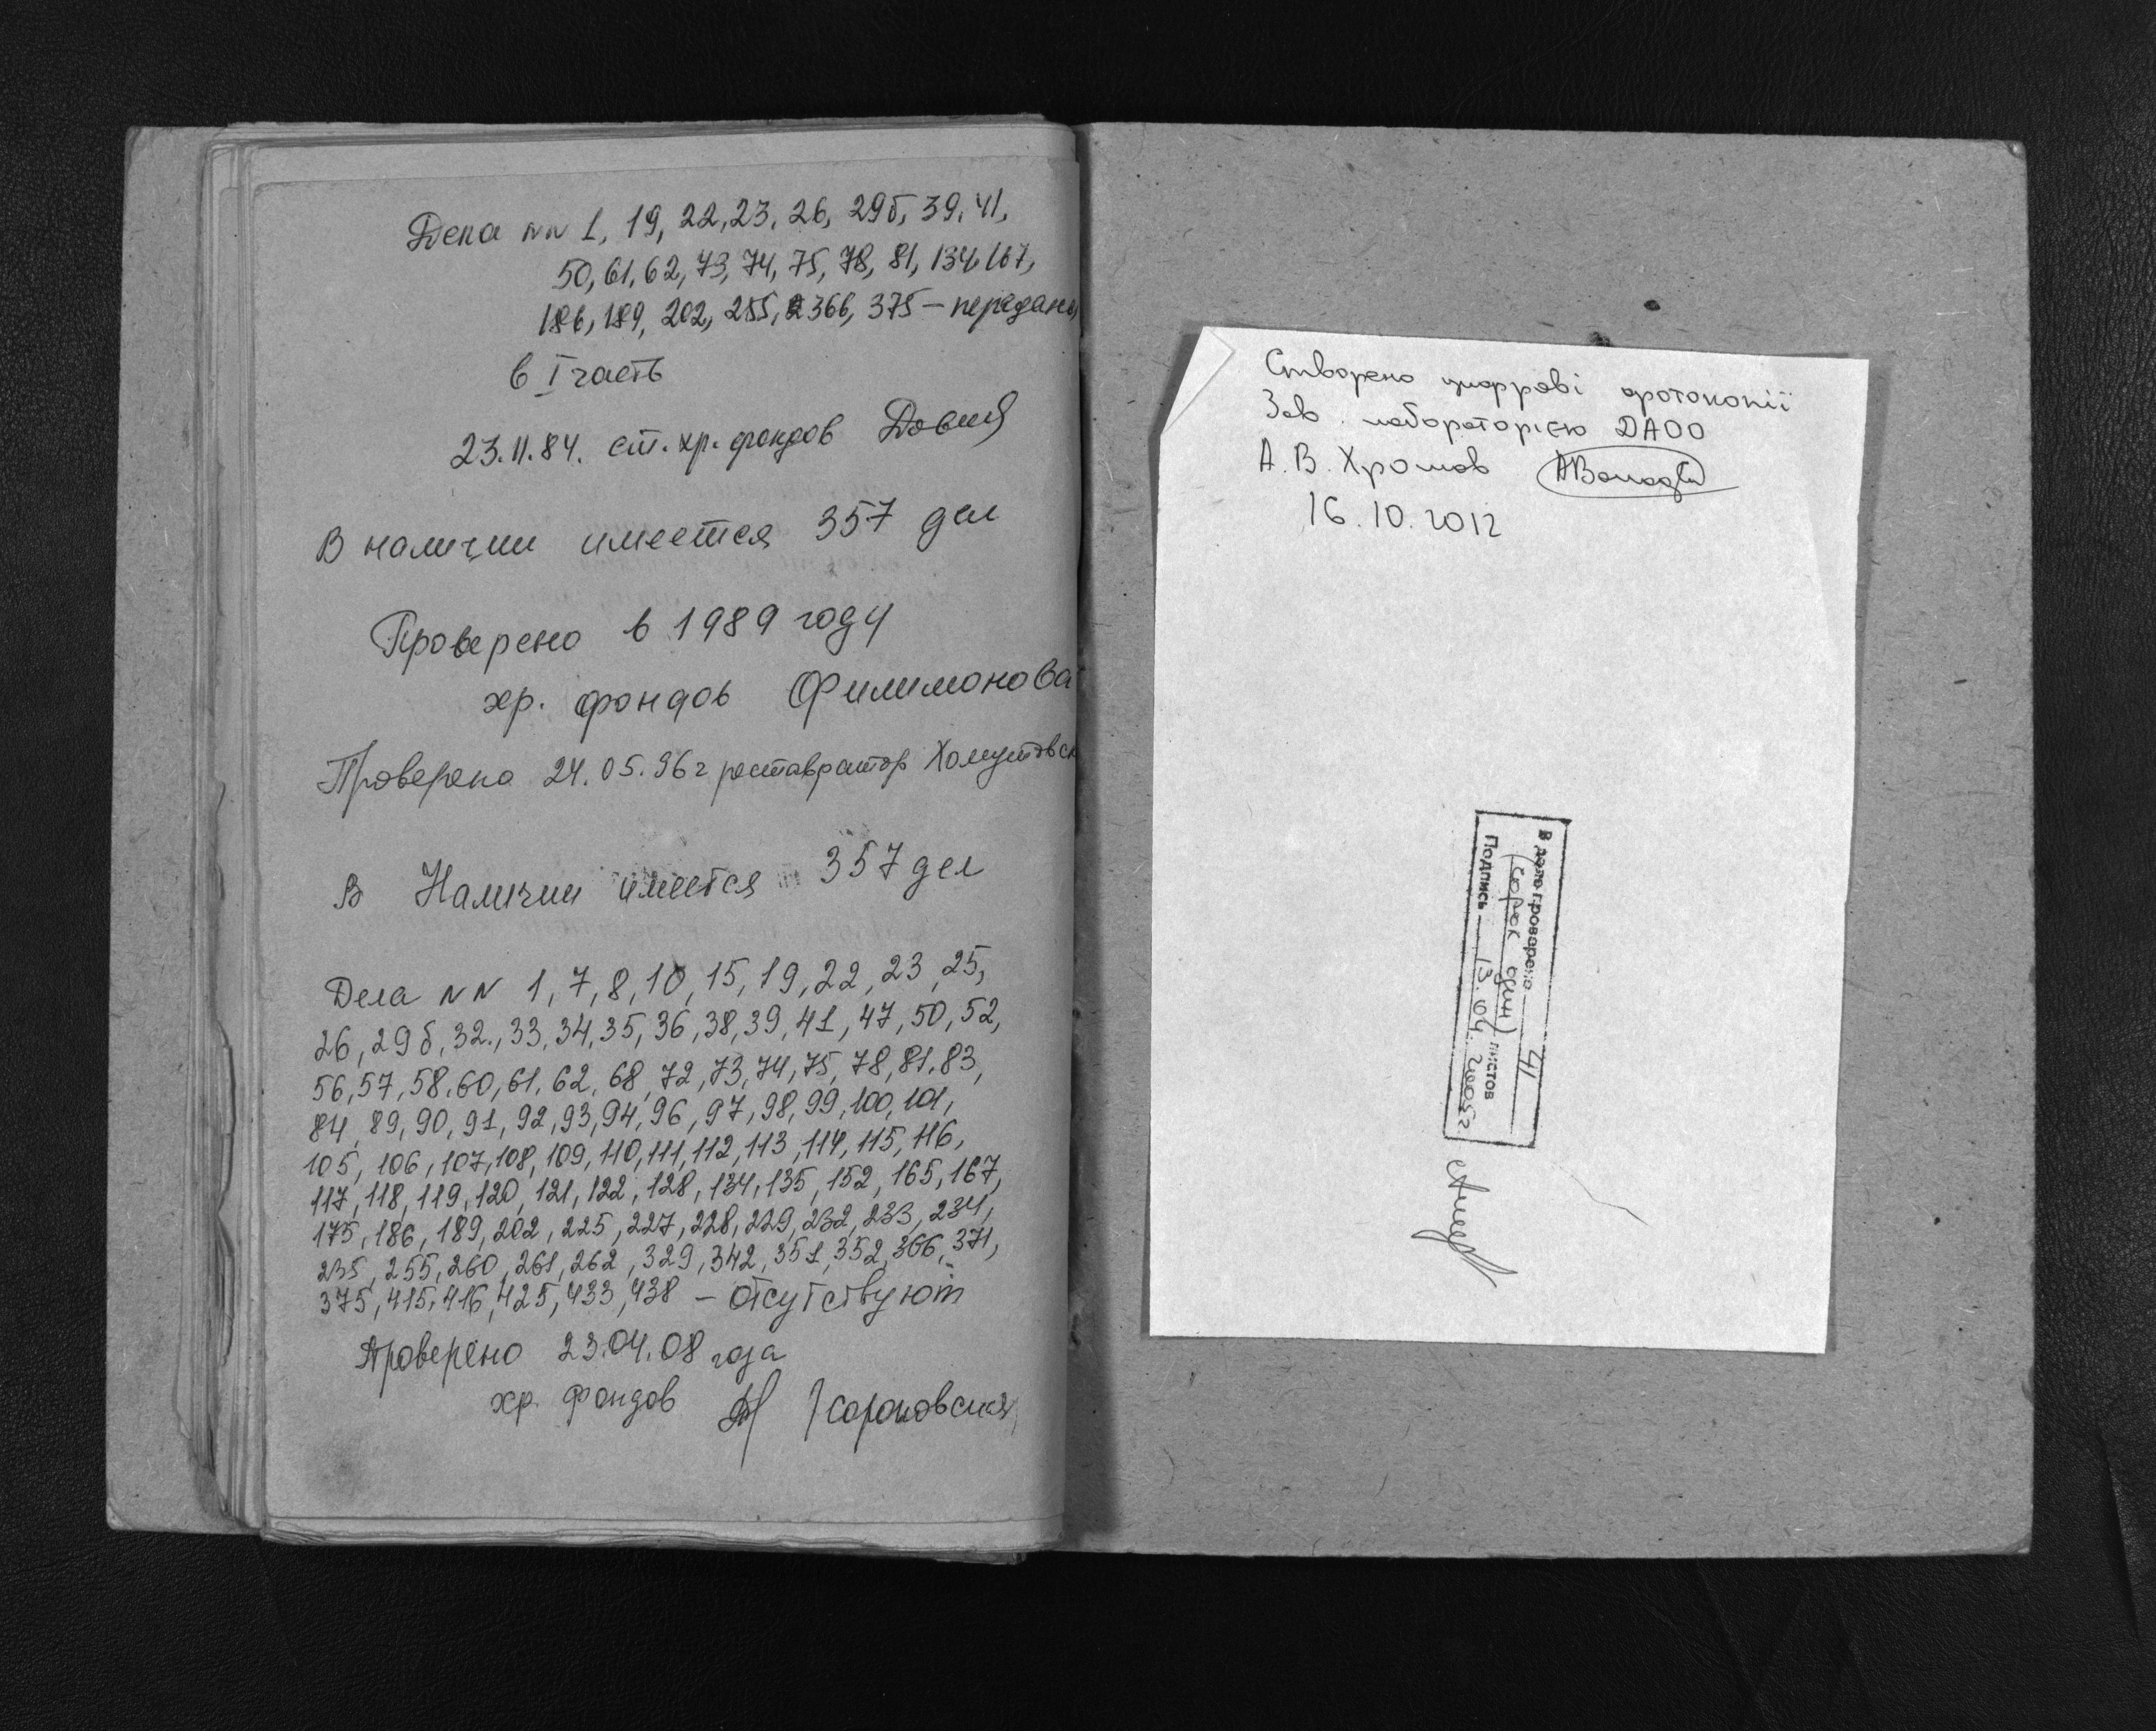 Дела NN 1, 19, 22, 23, 26, 29б, 39, 41,
50, 61, 62, 73, 74, 75, 78, 81, 134, 167,
186, 189, 202, 255, 366, 375 – переданы
в I часть
23.11.84. ст. хр. фондов
В наличии имеется 357 дел
Проверено в 1989 году
хр. фондов Филимонова
Проверено 24.05.96 г реставратор Хомутовск
В Наличии имеется 357 дел
Дела NN 1, 7, 8, 10, 15, 19, 22, 23, 25,
26, 29б, 32, 33, 34, 35, 36, 38, 39, 41, 47, 50, 52,
56, 57, 58, 60, 61, 62, 68, 72, 73, 74, 75, 78, 81, 83,
84, 89, 90, 91, 92, 93, 94, 96, 97, 98, 99, 100, 101,
105, 106, 107, 108, 109, 110, 111, 112, 113, 114, 115, 116,
117, 118, 119, 120, 121, 122, 128, 134, 135, 152, 165, 167,
175, 186, 189, 202, 225, 227, 228, 229, 232, 233, 234,
235, 255, 260, 261, 262, 329, 342, 351, 352, 366, 371,
375, 415, 416, 425, 433, 438 – отсутствуют
Проверено 23.04.08 года
хр. фондов
Створено цифрові фотокопії
Зав. лабораторією ДАОО
А. В. Хромов
16.10.2012
В дело проверено 41
(сорок один) листов
Подпись 13.04.2005г.